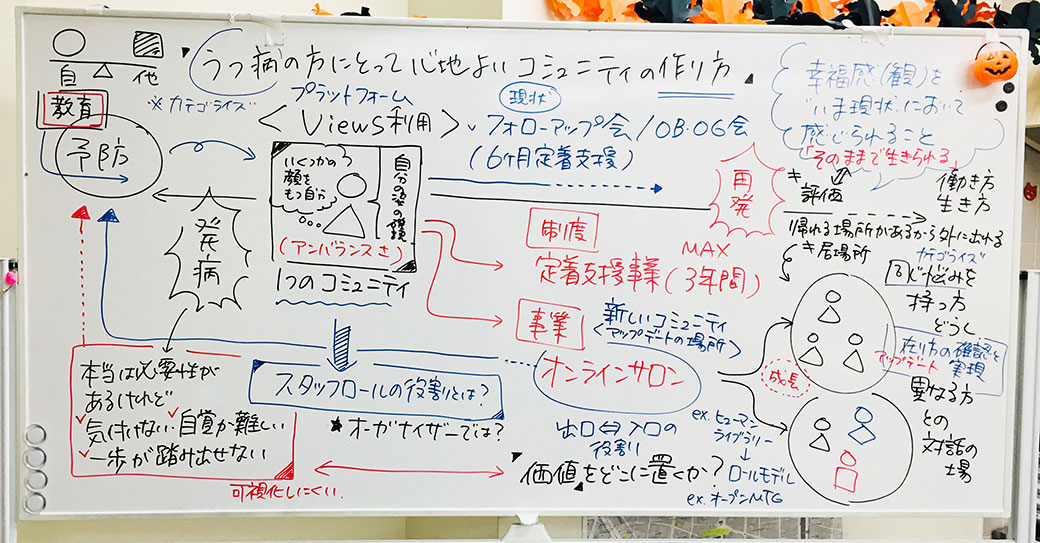 うつ病の方にとって心地よいコミュニティの作り方
自 他
教育
※カテゴライズ
予防
プラットフォーム
<Views利用>
現状
フォローアップ会/OB・OG会
(6ヶ月定着支援)
幸福感(観)を
いま現状において
感じられること
「そのままで生きられる」
いくつかの
顔を
もつ自分
(アンバランスさ)
1つのコミュニティ
発病
再発
キ評価
働き方
生き方
帰れる場所があるから外に出れる
キ居場所
制度
定着支援事業(3年間)
MAX
事業
新しいコミュニティ
<アップデートの場所>
オンラインサロン
成長
カテゴライズ
同じ悩みを
持つ方
どうし
在り方の確認と
アップデート 実現
異なる方
との
対話の
場
本当は必要性が
あるけれど
気付けない 自覚が難しい
一歩が踏み出せない
可視化しにくい.
スタッフロールの役割とは?
オーガナイザーでは?
出口⇔入口の
役割
価値をどこに置くか?
ex.ヒューマン
ライブラリー
ロールモデル
ex.オープンMTG